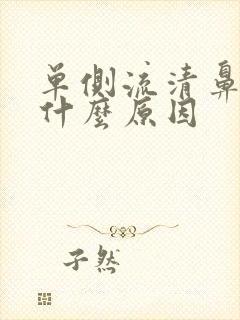 单侧流清鼻
什麼原因
子然